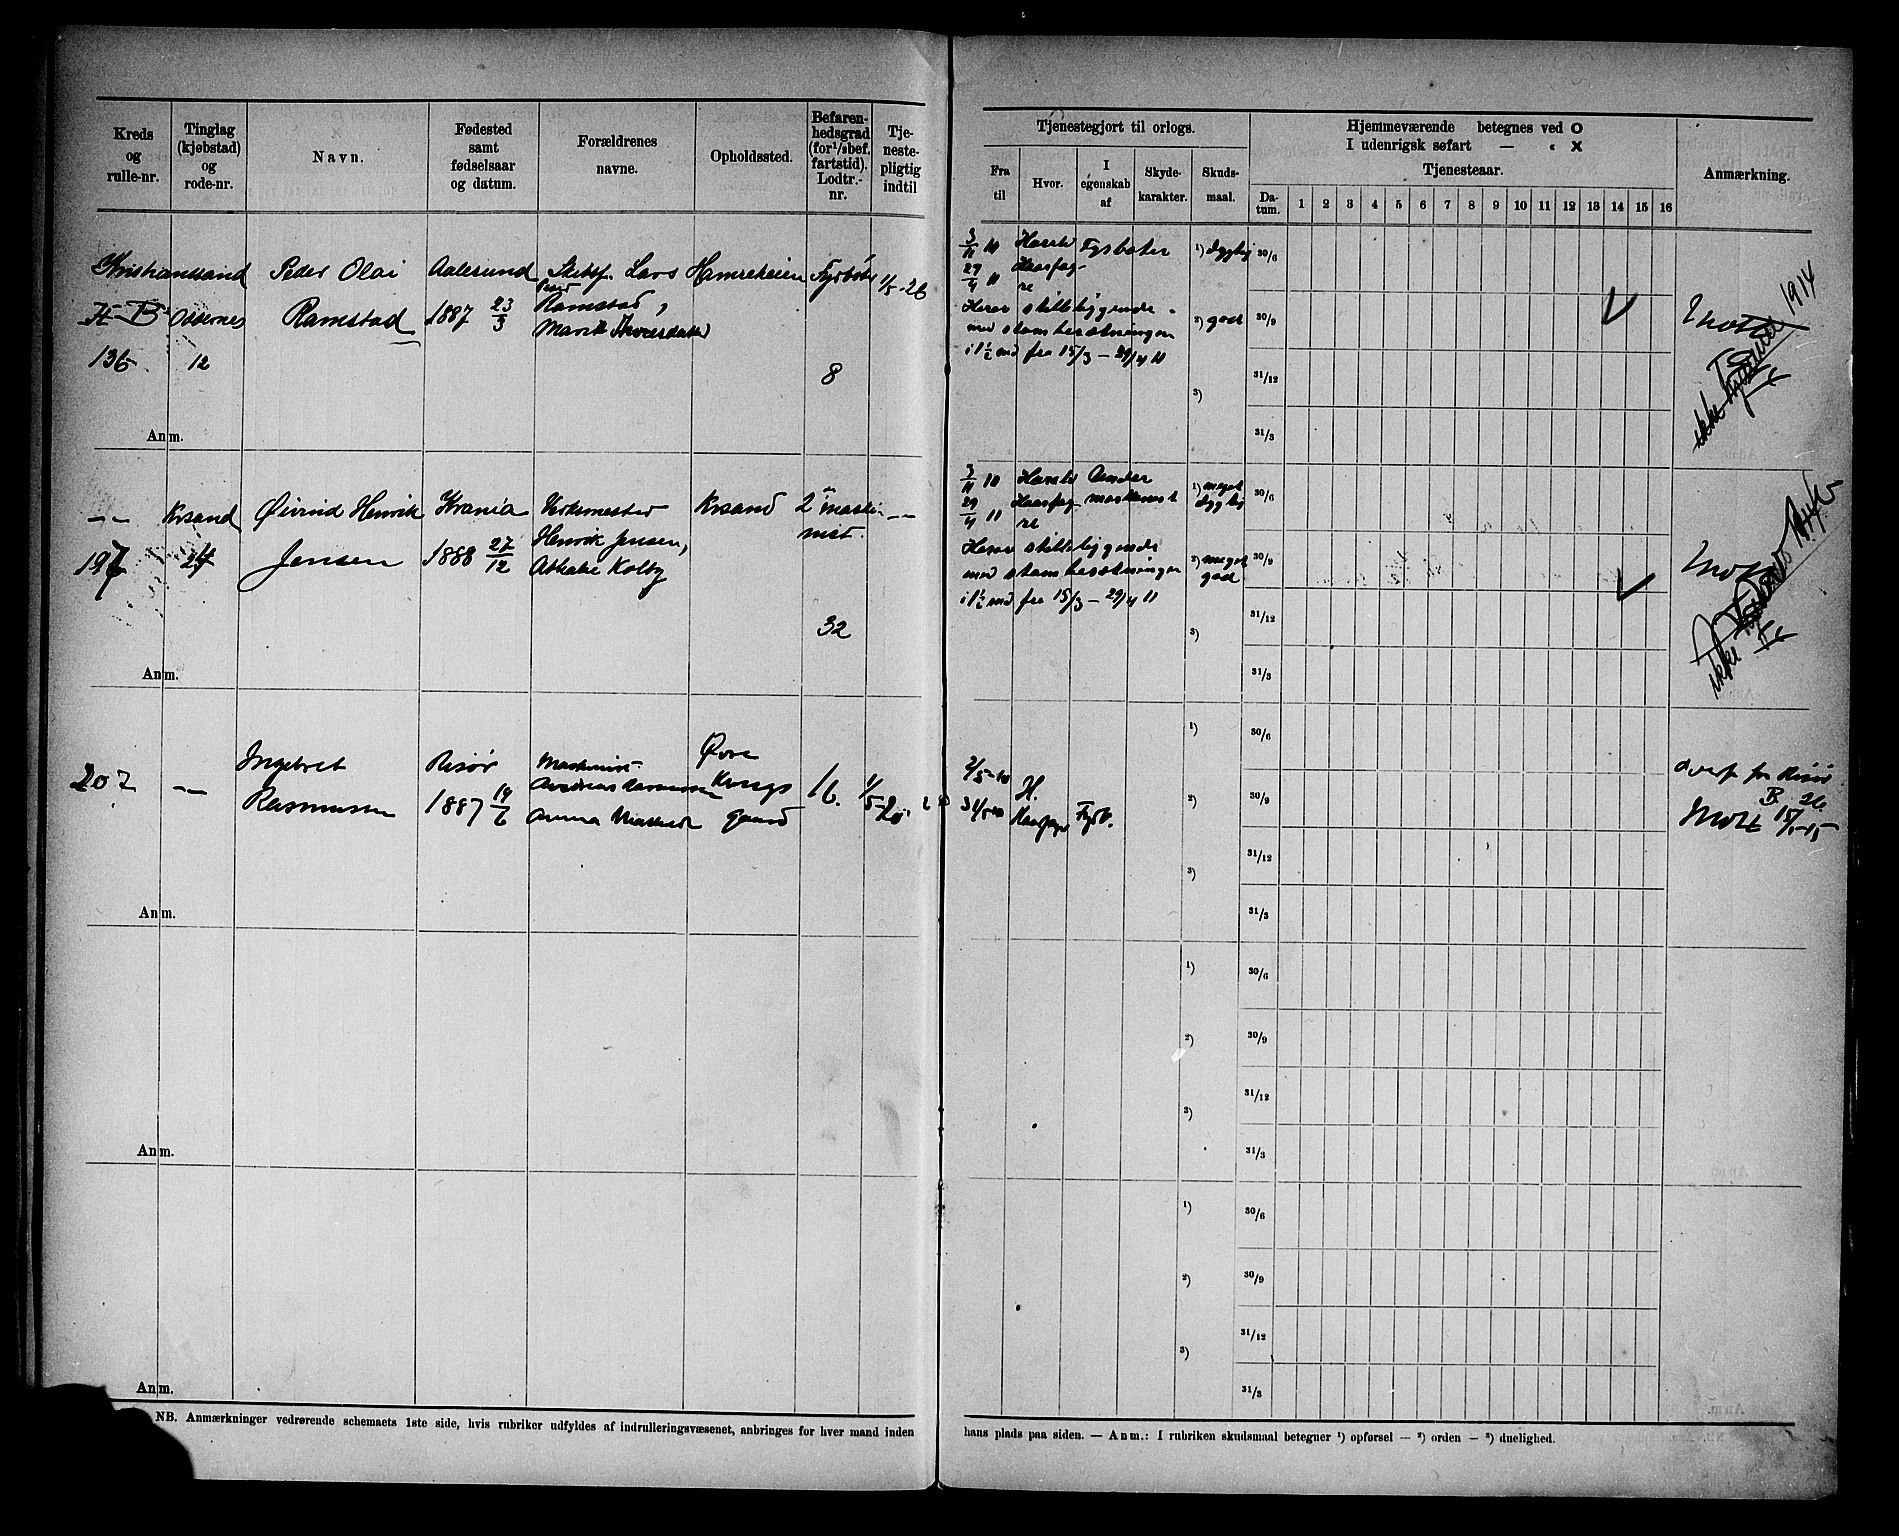 Kreds og rulle-nr.
Tinglag (kjøbstad) og rode-nr.
Navn.
Fødested samt fødselsaar og datum.
Forældrenes navne.
Opholdssted.
Befaren-hedsgrad (for 1/2 bef. fartstid). Lodtr.-nr.
Tje-neste-pligtig indtil
Tjenestegjort til orlogs.
Fra til
Hvor.
I egenskab af
Skyde-karakter.
Skuds-maal.
Hjemmeværende betegnes ved O
I udenrigsk søfart — « X
Tjenesteaar.
Da-tum.
1 2 3 4 5 6 7 8 9 10 11 12 13 14 15 16
Anmærkning.
Kristianssand Peder Olai Aalesund Hamreheien Fyrbøter 1/5-26
Ramstad 1887 23/3 Ramstad,
136 12
8
3/11 10 Harald Fyrbøter 1) dygtig 30/6
29/4 11 Haarfag-re
Herav stilleliggende
med stambesætningen 2) god 30/9
i 1 1/2 md fra 15/3 – 29/4 11
31/12
3)
31/3
1914
ikke
Anm.
-"- Krsand Øivind Henrik Krania Verksmester Krsand 2 maski- -"-
nist.
197 24 Jensen 1888 27/12 Henrik Jensen,
Athalie Kolby
32
3/11 10 Harald Under 1) meget dygtig 30/6
29/4 11 Haarfag-re maskinist
Herav stilleliggende
med stambesætningen 2) meget god 30/9
i 1 1/2 md fra 15/3 – 29/4 11
31/12
3)
31/3
ikke
Anm.
207 -"- Ingebret Risør Maskinist Øvre
Rasmussen 1887 19/6 Rasmussen Kongs 16. 1/5-20
Anna gaard
2/5-10 H. Fyrb.
1) 30/6
2) 30/9
3) 31/12
31/3
overf. fra Risør
B. 26.
Mott 15/1-15
Anm.
1) 30/6
2) 30/9
3) 31/12
31/3
Anm.
1) 30/6
2) 30/9
3) 31/12
31/3
Anm.
NB. Anmærkninger vedrørende schemaets 1ste side, hvis rubriker udfyldes af indrulleringsvæsenet, anbringes for hver mand inden
hans plads paa siden. — Anm.: I rubriken skudsmaal betegner 1) opførsel — 2) orden — 3) duelighed.